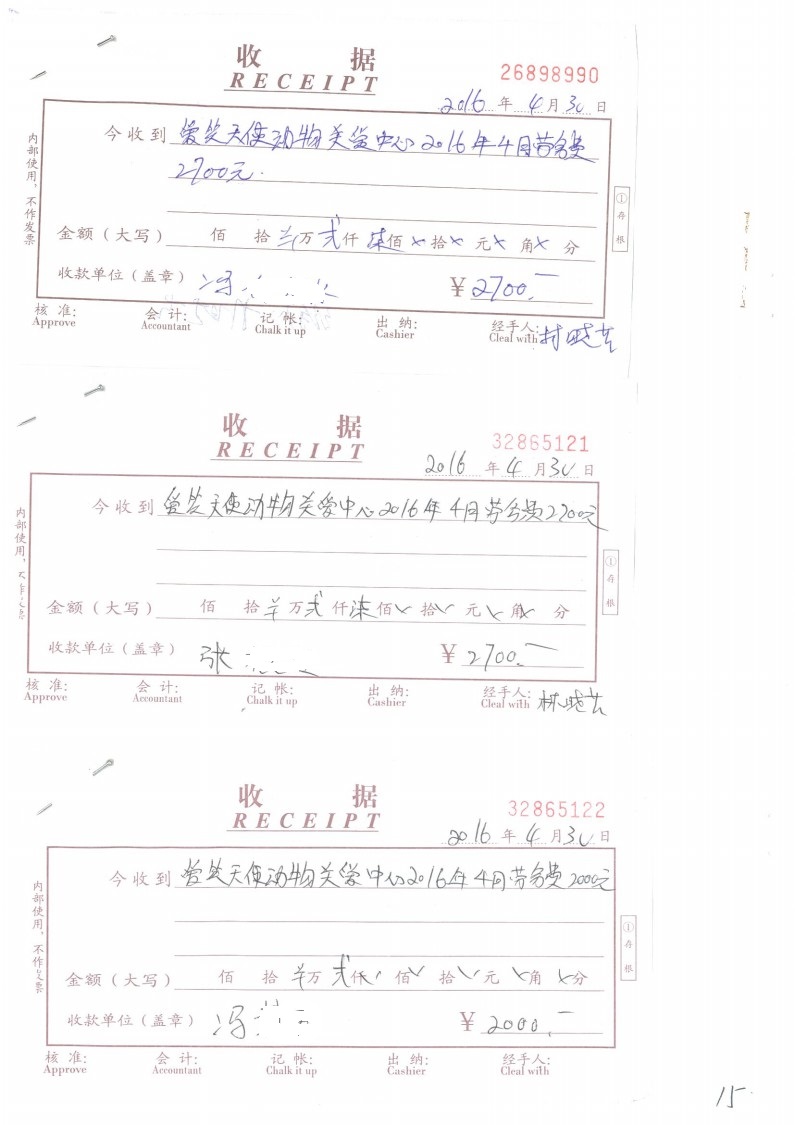 收 据
RECEIPT
26898990
2016 年 4 月 30 日
内部使用,不作发票
今收到 爱笑天使动物关爱中心2016年4月劳务费
2700元.
金额(大写) 佰 拾 万 贰 仟 柒 佰 × 拾 × 元 × 角 × 分
收款单位(盖章) 冯
¥ 2700.
①存根
核 准: 会 计: 记 帐: 出 纳: 经手人: 林晓芸
Approve Accountant Chalk it up Cashier Cleal with
收 据
RECEIPT
32865121
2016 年 4 月 30 日
内部使用,
今收到 爱笑天使动物关爱中心2016年4月劳务费2700元
金额(大写) 佰 拾 万 贰 仟 柒 佰 拾 元 角 分
收款单位(盖章) 张
¥ 2700.
①存根
核 准: 会 计: 记 帐: 出 纳: 经手人: 林晓芸
Approve Accountant Chalk it up Cashier Cleal with
收 据
RECEIPT
32865122
2016 年 4 月 30 日
内部使用,不作发票
今收到 爱笑天使动物关爱中心2016年4月劳务费2000元
金额(大写) 佰 拾 万 贰 仟 佰 拾 元 角 分
收款单位(盖章) 冯
¥ 2000.
①存根
核 准: 会 计: 记 帐: 出 纳: 经手人:
Approve Accountant Chalk it up Cashier Cleal with
15